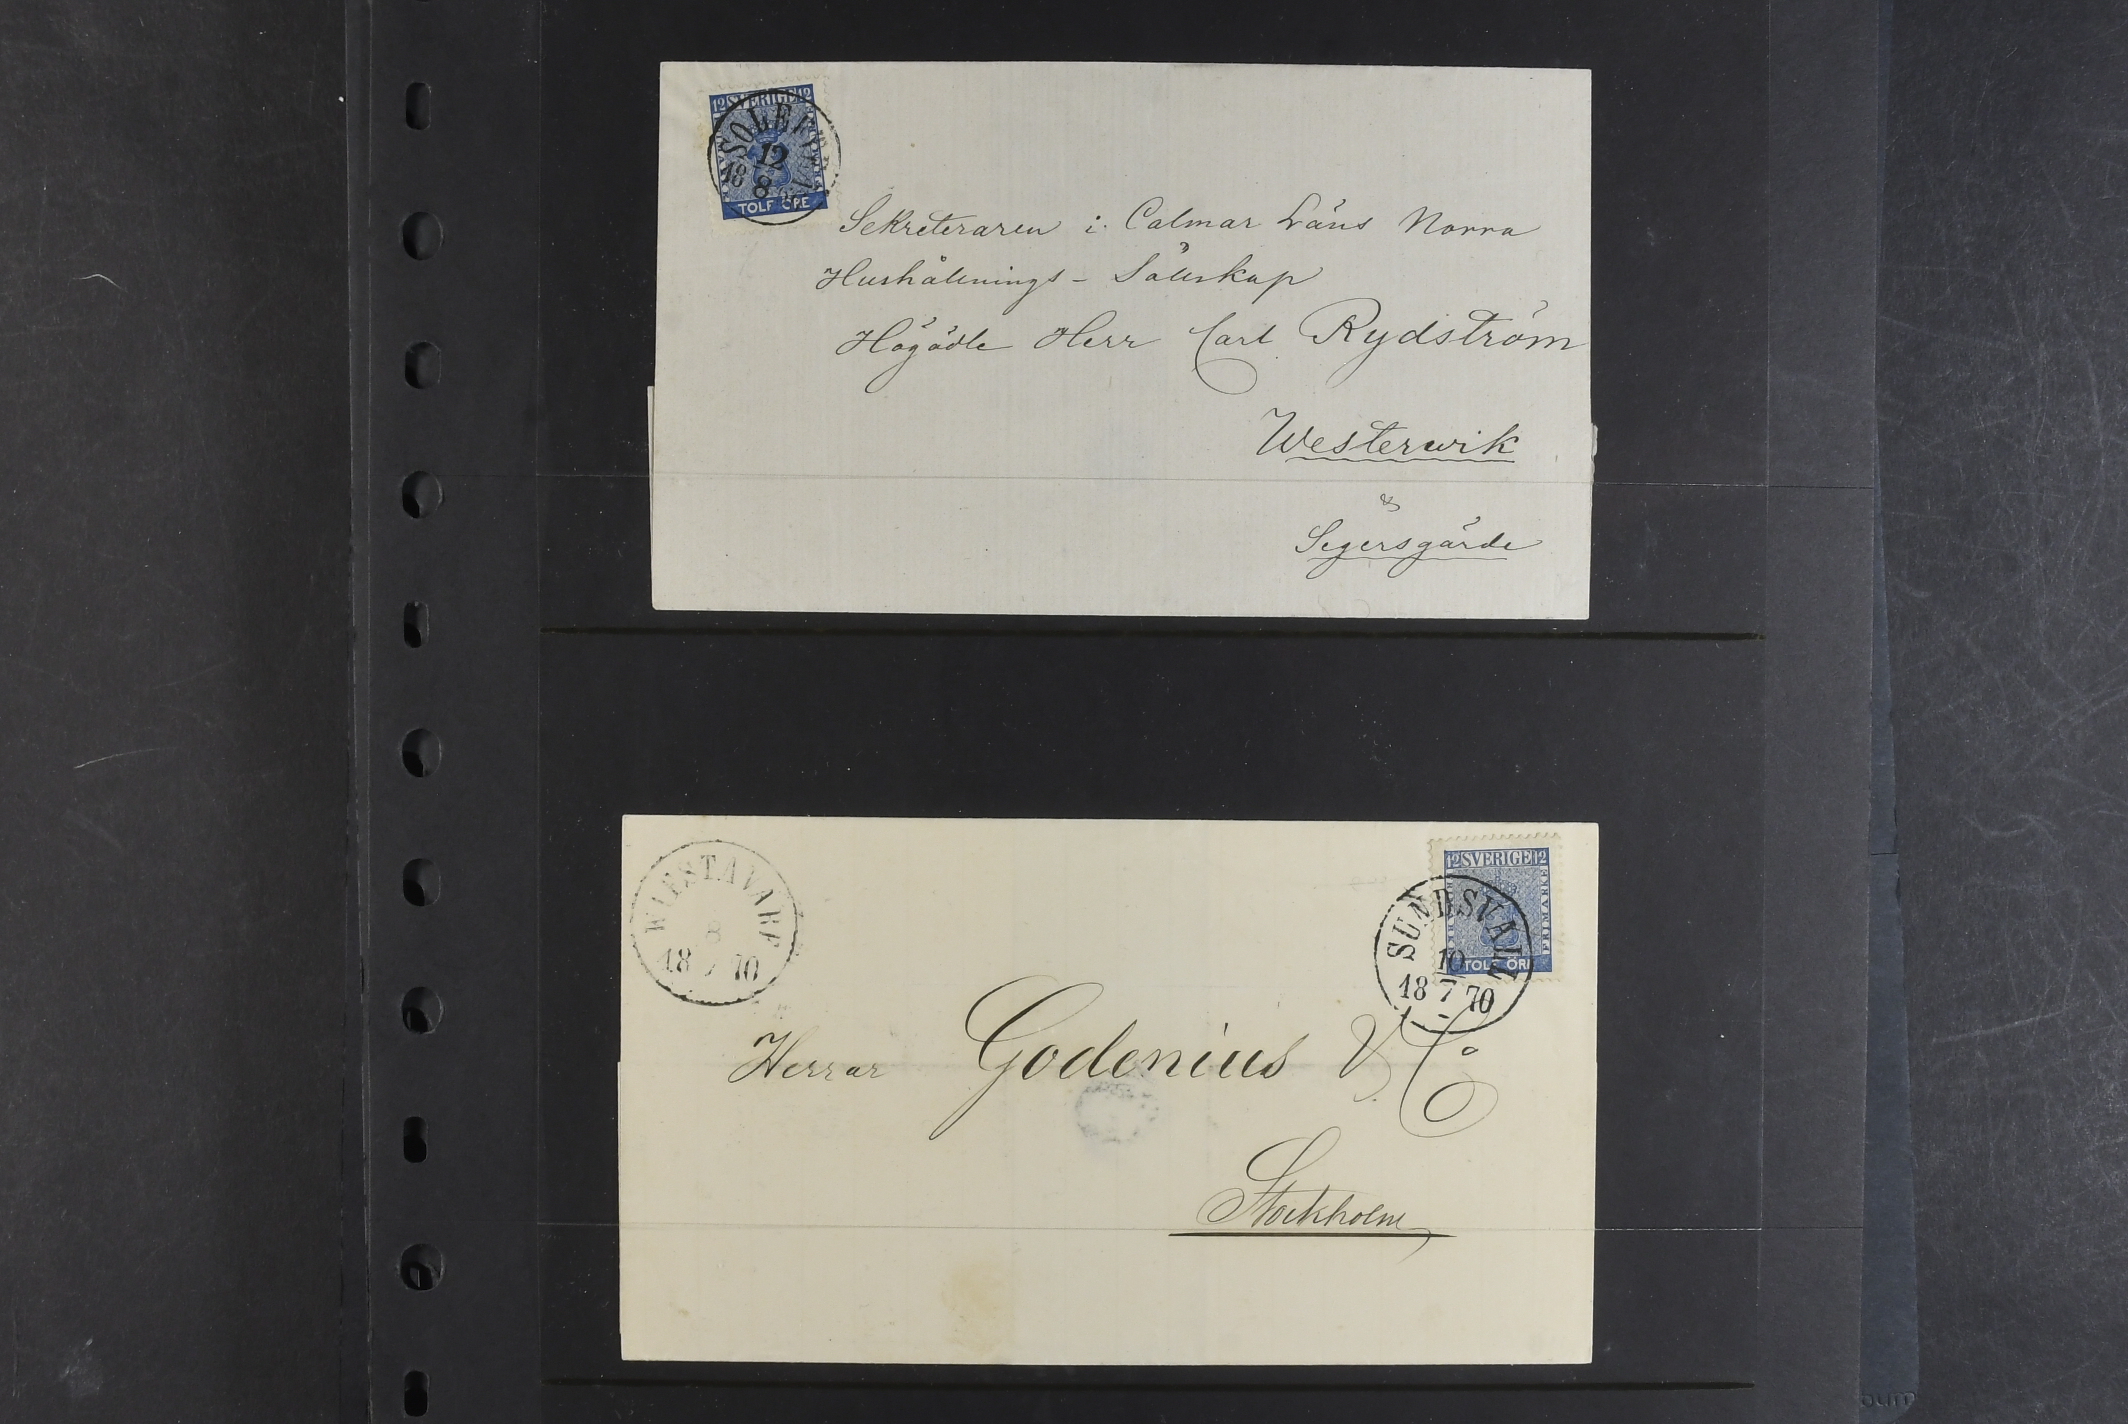 12 SVERIGE 12
12
8
18
TOLF ÖRE
Sekreteraren i Calmar Läns Norra
Hushållnings - Sällskap
Högädle Herr Carl Rydström
Westerwik
&
Segersgärde
WIFSTAVARF
8
18 7 70
12 SVERIGE 12
FRIMÄRKE
TOLF ÖRE
SUNDSVALL
10
18 7 70
Herrar Godenius & Co
Stockholm